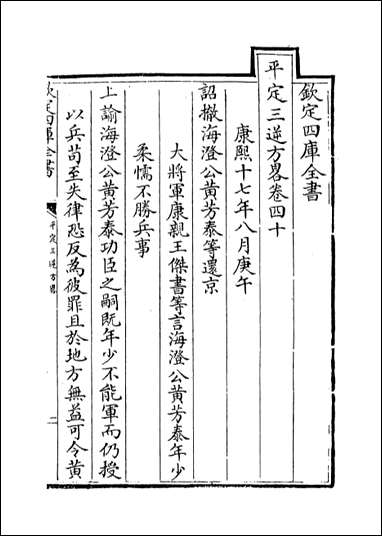 欽定四庫全書
平定三逆方畧卷四十
康熙十七年八月庚午
詔撤海澄公黃芳泰等還京
大將軍康親王傑書等言海澄公黃芳泰年少
柔懦不勝兵事
上諭海澄公黃芳泰功臣之嗣既年少不能軍而仍授
以兵苟至失律恐反為彼罪且於地方無益可令黃
欽定四庫全書
平定三逆方畧